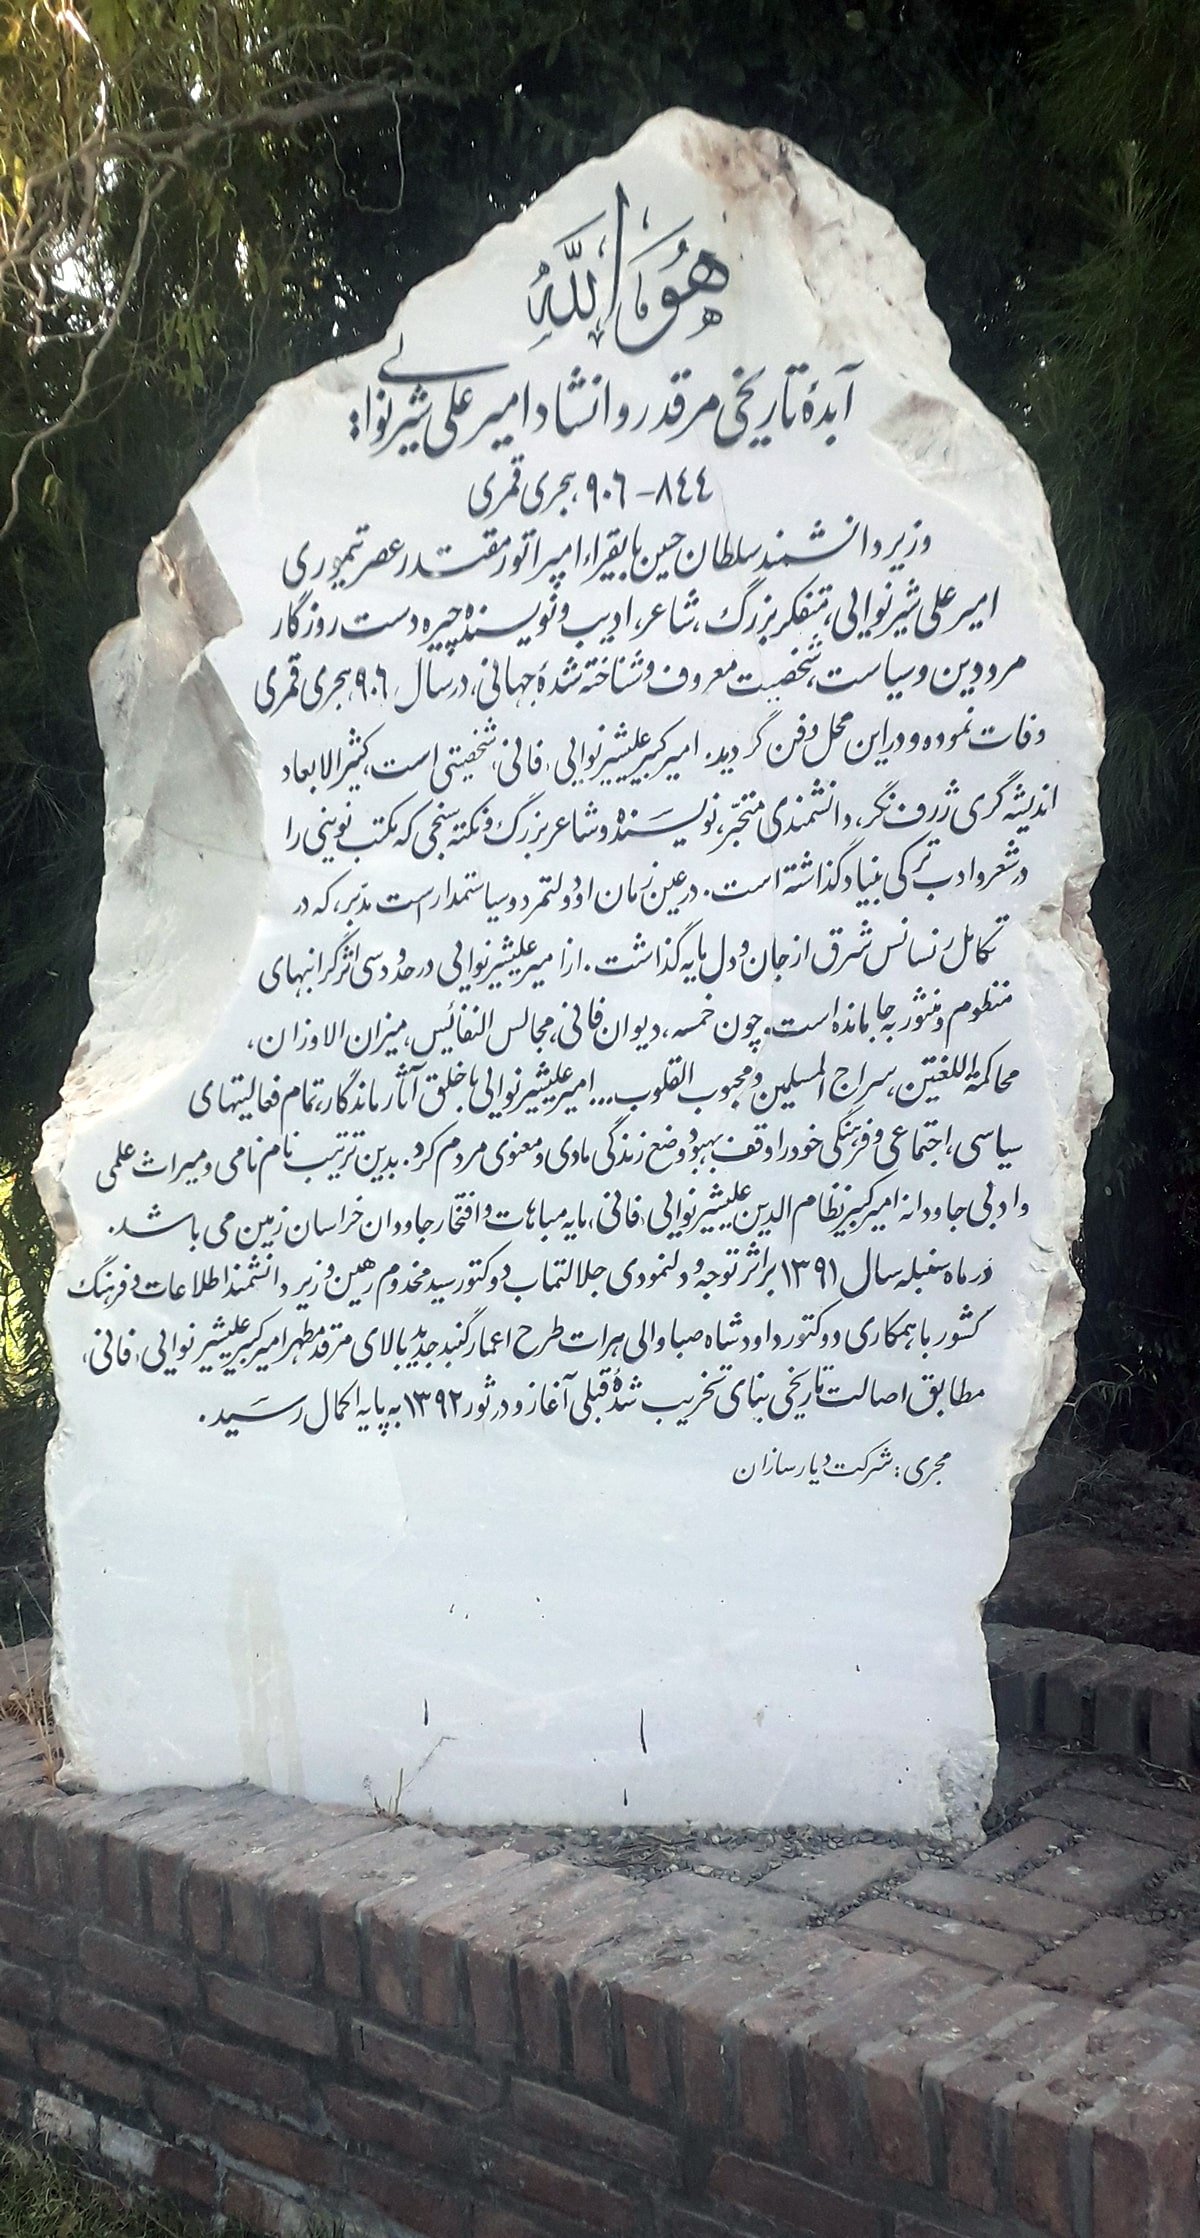 هُوَ اللّٰهُ
آبدهٔ تاریخی مرقد روانشاد امیر علی شیر نوایی
۸٤٤ - ۹۰٦ هجری قمری
وزیر دانشمند سلطان حسین بایقراء امپراتور مقتدر عصر تیموری
امیر علی شیر نوایی، متفکر بزرگ، شاعر، ادیب و نویسنده چیره دست روزگار
مرد دین و سیاست، شخصیت معروف و شناخته شدهٔ جهانی، در سال ۹۰٦ هجری قمری
وفات نموده و در این محل دفن گردید. امیر کبیر علیشیر نوایی، فانی، شخصیتی است کثیر الابعاد
اندیشه گری ژرف نگر، دانشمندی متبحّر، نویسنده و شاعر بزرگ و نکته سنجی که مکتب نوینی را
در شعر و ادب ترکی بنیاد گذاشته است. در عین زمان او دولتمرد و سیاستمدار است مدبّر، که در
تکامل رنسانس شرق از جان و دل مایه گذاشت. از امیر علیشیر نوایی در حدود سی اثر گرانبهای
منظوم و منثور به جا مانده است. چون خمسه، دیوان فانی، مجالس النفائیس، میزان الاوزان،
محاکمة اللغتین، سراج المسلمین و محبوب القلوب... امیر علیشیر نوایی با خلق آثار ماندگار، تمام فعالیتهای
سیاسی، اجتماعی و فرهنگی خود را وقف بهبود وضع زندگی مادی و معنوی مردم کرد. بدین ترتیب نام نامی و میراث علمی
و ادبی جاودانه امیر کبیر نظام الدین علیشیر نوایی، فانی، مایه مباهات و افتخار جاودان خراسان زمین می باشد.
در ماه سنبله سال ۱۳۹۱ بر اثر توجه و دلنمودی جلالتماب دوکتور سید مخدوم رهین وزیر دانشمند اطلاعات و فرهنگ
کشور با همکاری دوکتور داود شاه صبا والی هرات طرح اعمار گنبد جدید بالای مرقد مطهر امیر کبیر علیشیر نوایی، فانی،
مطابق اصالت تاریخی بنای تخریب شدهٔ قبلی آغاز و در ثور ۱۳۹۲ به پایه اکمال رسید.
مجری: شرکت دیار سازان